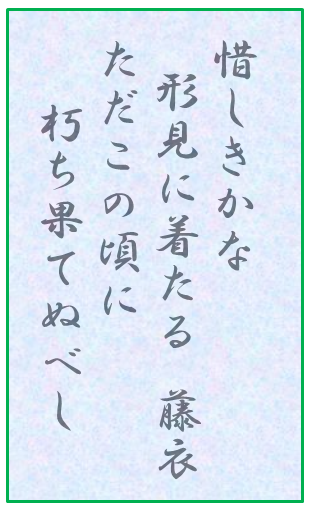 惜しきかな
形見に着たる　藤衣
ただこの頃に
朽ち果てぬべし